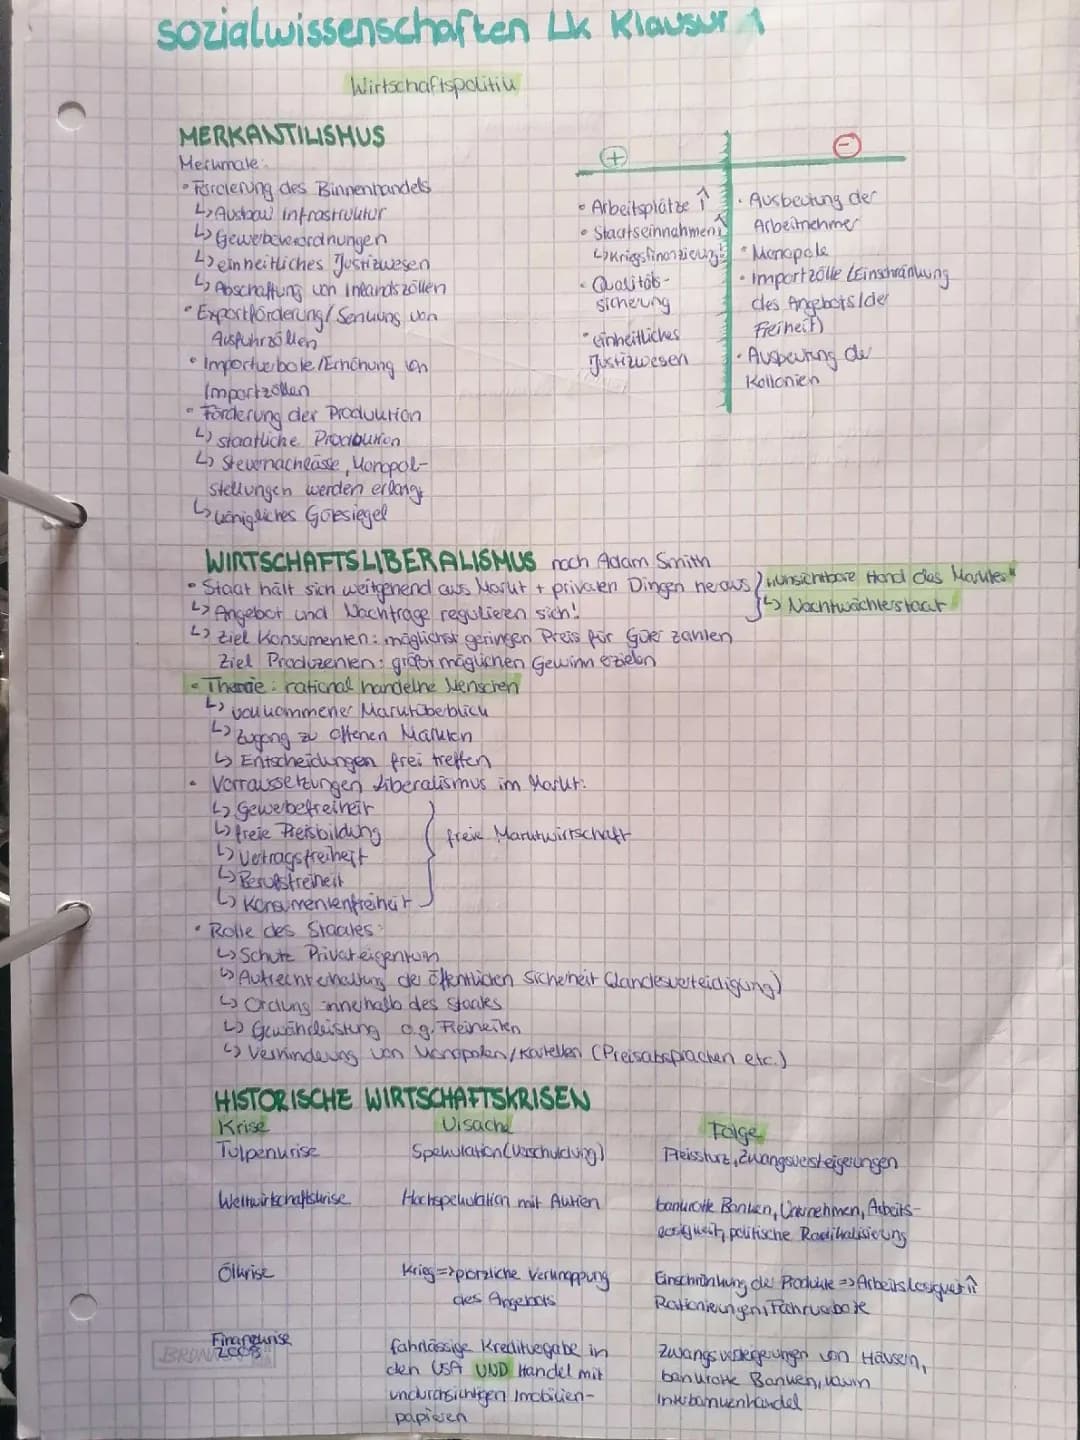 sozialwissenschaften Lk Klausur 1
Wirtschaftspolitik
MERKANTILISMUS
Merkmale:
• Förderung des Binnenhandels
↳ Ausbau Infrastruktur
↳ Gewerbeverordnungen
↳ einheitliches Justizwesen
↳ Abschaffung von Inlandszöllen
• Exportförderung/Senkung von
Ausfuhrzöllen
• Importverbote/Erhöhung von
Importzöllen
• Förderung der Produktion
↳ staatliche Produktion
↳ Steuernachlässe, Monopol-
stellungen werden erlangt
↳ königliches Gütesiegel
+
• Arbeitsplätze ↑
• Staatseinnahmen ↑
↳ Kriegsfinanzierung
• Qualitäts-
sicherung
• einheitliches
Justizwesen
-
• Ausbeutung der
Arbeitnehmer
• Monopole
• Importzölle (Einschränkung
des Angebots/der
Freiheit)
• Ausbeutung der
Kollonien
WIRTSCHAFTSLIBERALISMUS nach Adam Smith
• Staat hält sich weitgehend aus Markt + privaten Dingen heraus
↳ Angebot und Nachfrage regulieren sich!
"unsichtbare Hand des Marktes"
↳ Nachtwächterstaat
↳ Ziel Konsumenten: möglichst geringen Preis für Güter zahlen
Ziel Produzenten: größt möglichen Gewinn erzielen
• Theorie: rational handelne Menschen
↳ vollkommener Marktüberblick
↳ Zugang zu offenen Märkten
↳ Entscheidungen frei treffen
• Vorraussetzungen Liberalismus im Markt:
↳ Gewerbefreiheit
↳ freie Preisbildung
↳ Vertragsfreiheit
↳ Berufsfreiheit
↳ Konsumentenfreiheit
freie Marktwirtschaft
• Rolle des Staates:
↳ Schutz Privateigentum
↳ Aufrechterhaltung der öffentlichen Sicherheit (Landesverteidigung)
↳ Ordung innerhalb des Staates
↳ Gewährleistung o.g. Freiheiten
↳ Verhinderung von Monopolen/Kartellen (Preisabsprachen etc.)
HISTORISCHE WIRTSCHAFTSKRISEN
Krise Ursache Folge
Tulpenkrise Spekulation (Verschuldung) Preissturz, Zwangsversteigerungen
Weltwirtschaftskrise Hochspekulation mit Aktien bankrotte Banken, Unternehmen, Arbeits-
losigkeit, politische Radikalisierung
Ölkrise Krieg => plötzliche Verknappung Einschränkung der Produkte => Arbeitslosigkeit ↑
des Angebots Rationierungen, Fahrverbote
Finanzkrise fahrlässige Kreditvegabe in Zwangsverstegerungen von Häusern,
2008 den USA UND Handel mit bankrotte Banken, kaum
undurchsichtigen Imobilien- Interbankenhandel
papieren